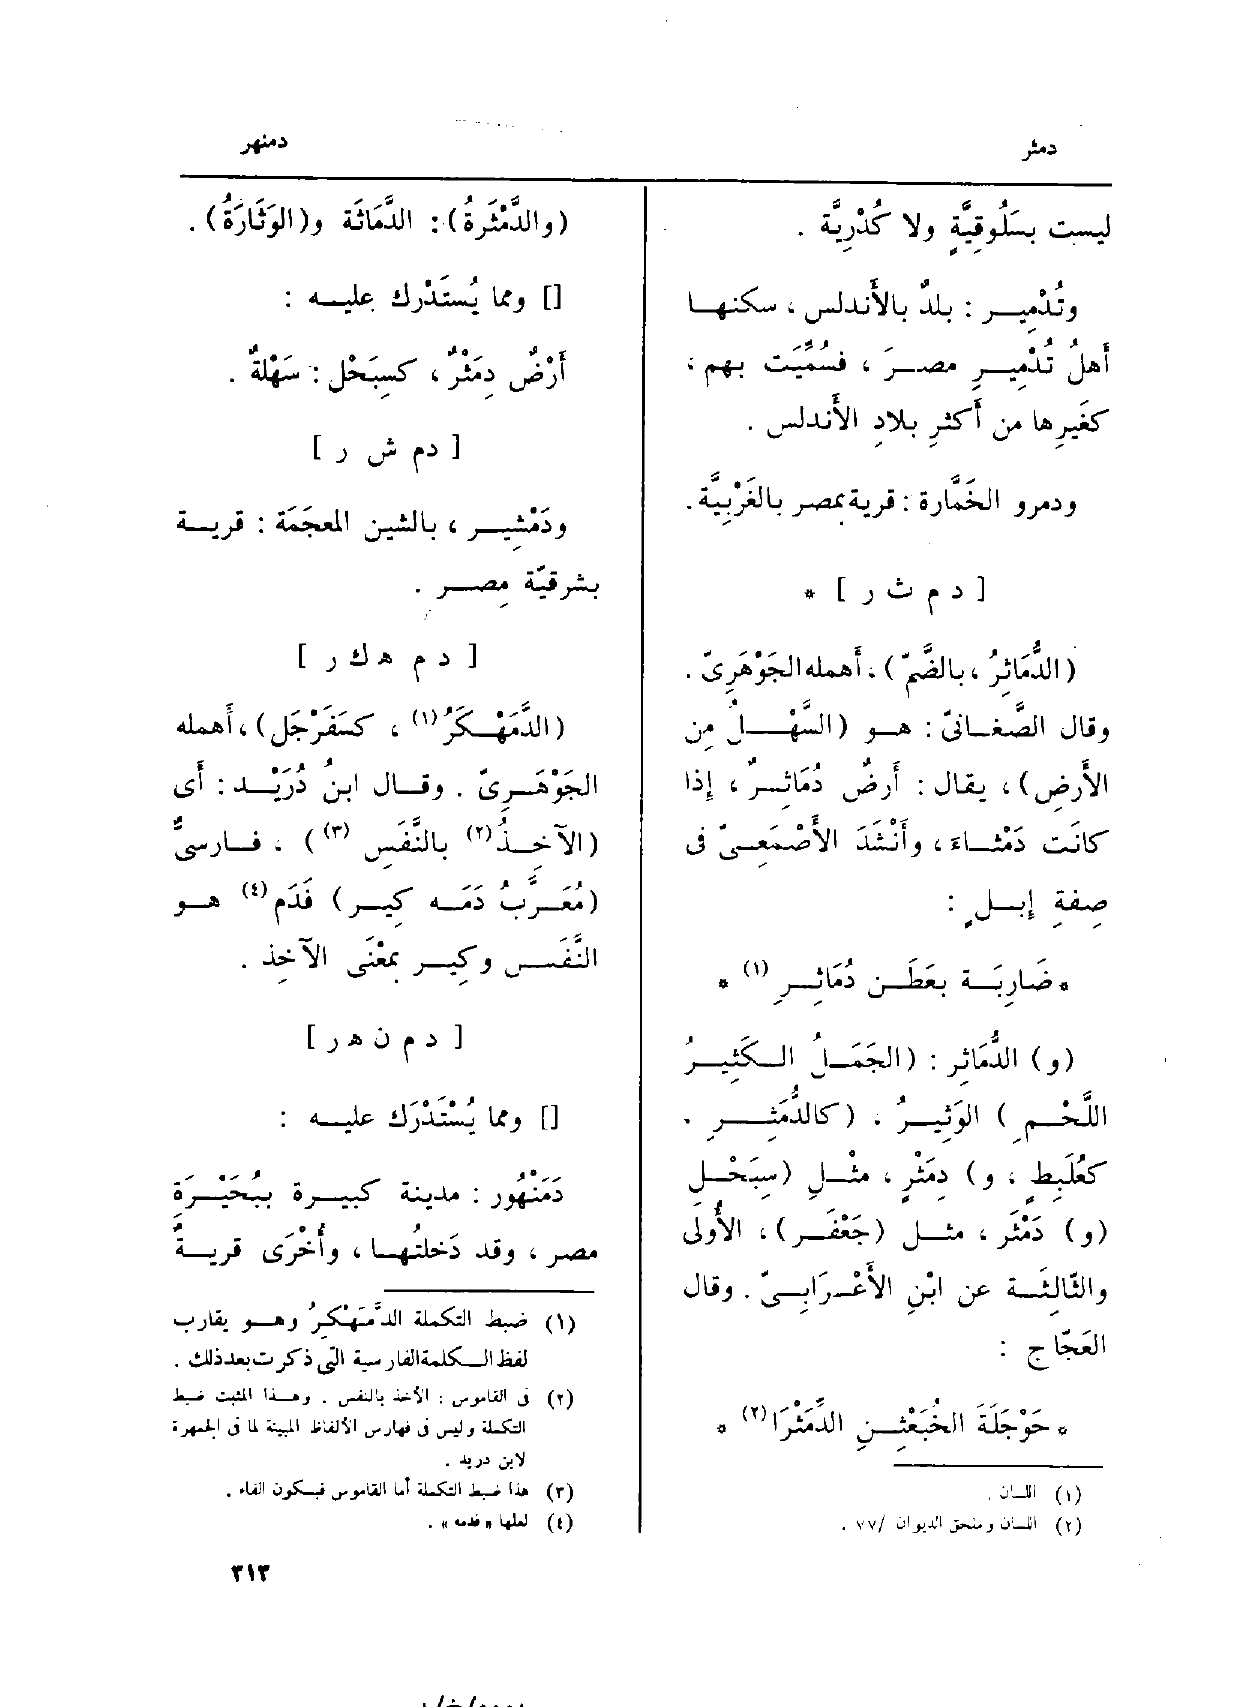 دمثر
دمنهر
ليست بسَلُوقِيَّةٍ ولا كُدْرِيَّة .
وتُدْمِيــر : بلدٌ بالأَندلس ، سكنهــا
أَهلُ تُدْمِيرِ مصـرَ ، فسُمِّيَت بهم ،
كغَيرِها من أَكثرِ بلادِ الأَندلس .
ودمرو الخَمَّارة : قرية بمصر بالغَرْبِيَّة .
[ د م ث ر ] *
(الدُّمَاثِرُ ، بالضَّمّ) ، أَهمله الجَوْهَرِىّ .
وقال الصَّغــانىّ : هــو (السَّهْــلُ مِن
الأَرضِ) ، يقال : أَرضٌ دُمَاثِــرٌ ، إِذا
كانَت دَمْثــاءَ ، وأَنْشَدَ الأَصْمَعِــىّ فى
صِفةِ إِبــلٍ :
* ضَارِبَــة بعَطَــنٍ دُمَاثِــرِ (١) *
(و) الدُّمَاثِر : (الجَمَــلُ الــكَثِيــرُ
اللَّحْــمِ ) الوَثِيــرُ ، (كالدُّمَثِــرِ ،
كعُلَبِطٍ ، و) دِمَثْرٍ ، مثْــلِ (سِبَحْــلٍ
(و) دَمْثَر ، مثــل (جَعْفَــر) ، الأُولى
والثّالِثَــة عن ابْنِ الأَعْــرَابِــىّ . وقال
العَجّاج :
* حَوْجَلَةَ الخُبَعْثِــنِ الدِّمَثْرَا (٢) *
(١) اللسان .
(٢) اللسان وملحق الديوان /٧٧ .
(والدَّمْثَرةُ) : الدَّمَاثَة و(الوَثَارَةُ) .
[] ومما يُستَدْرك عليــه :
أَرْضٌ دِمَثْرٌ ، كسِبَحْل : سَهْلةٌ .
[ دم ش ر ]
ودَمْشِيــر ، بالشين المعجَمَة : قريــة
بشرقيّة مِصــر .
[ د م هـ ك ر ]
(الدَّمَهْــكَرُ (١) ، كسَفَرْجَل) ، أَهمله
الجَوْهَــرِىّ . وقــال ابنُ دُرَيْــد : أَى
(الآخِــذُ (٢) بالنَّفَسِ (٣)) ، فــارسىٌّ
(مُعَــرَّبُ دَمَــه كِيــر) فَدَم (٤) هــو
النَّفَــس وكِيــر بمعْنَى الآخِذ .
[ د م ن هـ ر ]
[] ومما يُسْتَدْرَك عليــه :
دَمَنْهُور : مدينة كبيــرة ببُحَيْــرَةِ
مصر ، وقد دَخلتُهــا ، وأُخْرَى قريــةٌ
(١) ضبط التكملة الدَّمَهْكِرُ وهــو يقارب
لفظ الــكلمة الفارسية التى ذكرت بعد ذلك .
(٢) فى القاموس : الأخذ بالنفس . وهــذا المثبت ضبط
التكملة وليس فى فهارس الألفاظ المبينة لما فى الجمهرة
لابن دريد .
(٣) هذا ضبط التكملة أما القاموس فبسكون الفاء .
(٤) لعلها « فدمه » .
٣١٣